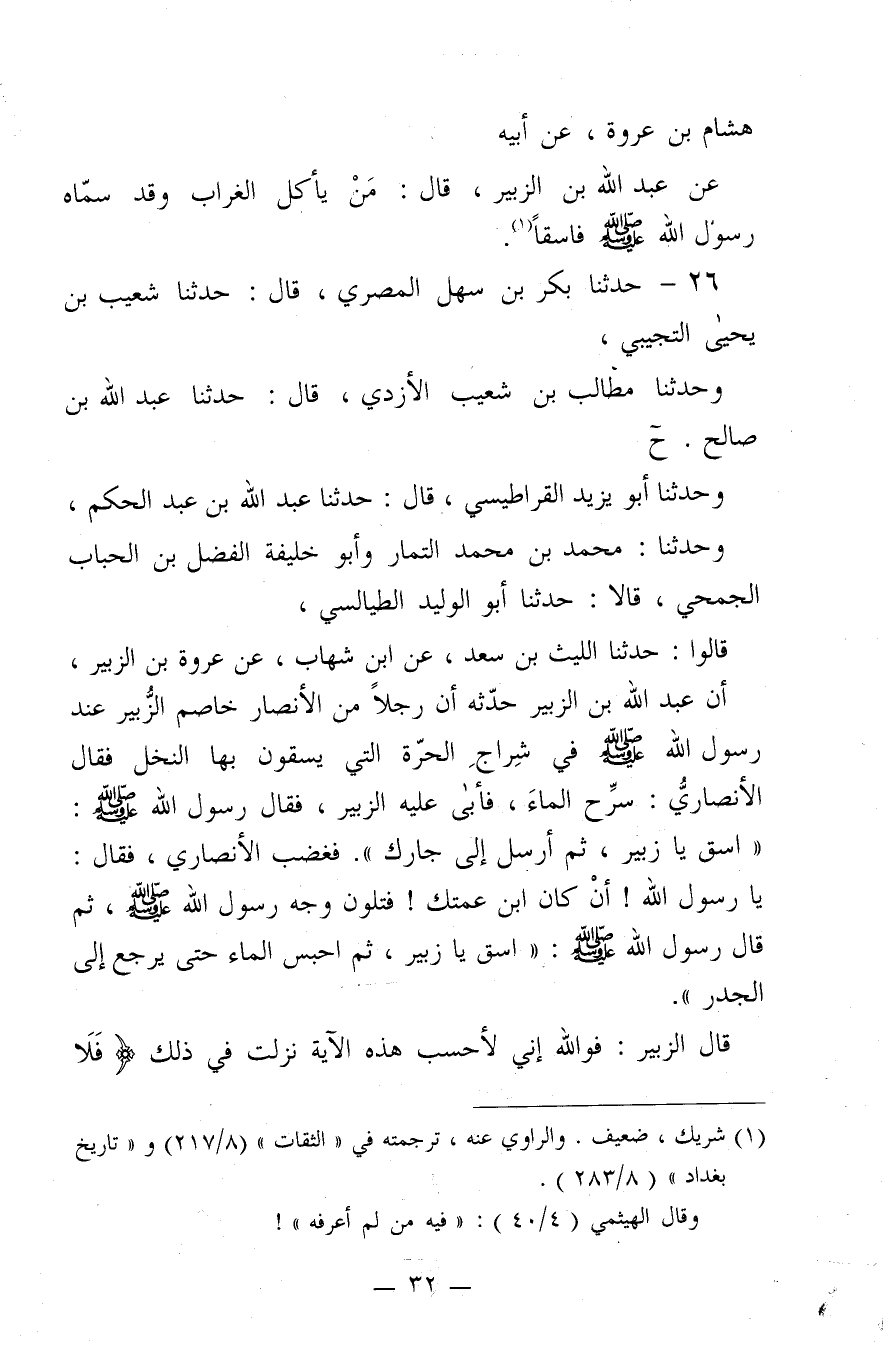 هشام بن عروة ، عن أبيه
عن عبد الله بن الزبير ، قال : مَنْ يأكل الغراب وقد سمّاه
رسول الله ﷺ فاسقاً(١).
٢٦ – حدثنا بكر بن سهل المصري ، قال : حدثنا شعيب بن
يحيىٰ التجيبي ،
وحدثنا مطالب بن شعيب الأزدي ، قال : حدثنا عبد الله بن
صالح . حَ
وحدثنا أبو يزيد القراطيسي ، قال : حدثنا عبد الله بن عبد الحكم ،
وحدثنا : محمد بن محمد التمار وأبو خليفة الفضل بن الحباب
الجمحي ، قالا : حدثنا أبو الوليد الطيالسي ،
قالوا : حدثنا الليث بن سعد ، عن ابن شهاب ، عن عروة بن الزبير ،
أن عبد الله بن الزبير حدّثه أن رجلاً من الأنصار خاصم الزُّبير عند
رسول الله ﷺ في شِراجِ الحرّة التي يسقون بها النخل فقال
الأنصاريُّ : سرِّح الماءَ ، فأبىٰ عليه الزبير ، فقال رسول الله ﷺ :
« اسق يا زبير ، ثم أرسل إلى جارك ». فغضب الأنصاري ، فقال :
يا رسول الله ! أنْ كان ابن عمتك ! فتلون وجه رسول الله ﷺ ، ثم
قال رسول الله ﷺ : « اسق يا زبير ، ثم احبس الماء حتى يرجع إلى
الجدر ».
قال الزبير : فوالله إني لأحسب هذه الآية نزلت في ذلك ﴿ فَلَا
(١) شريك ، ضعيف . والراوي عنه ، ترجمته في « الثقات » (٢١٧/٨) و « تاريخ
بغداد » ( ٢٨٣/٨ ) .
وقال الهيثمي ( ٤٠/٤ ) : « فيه من لم أعرفه » !
— ٣٢ —